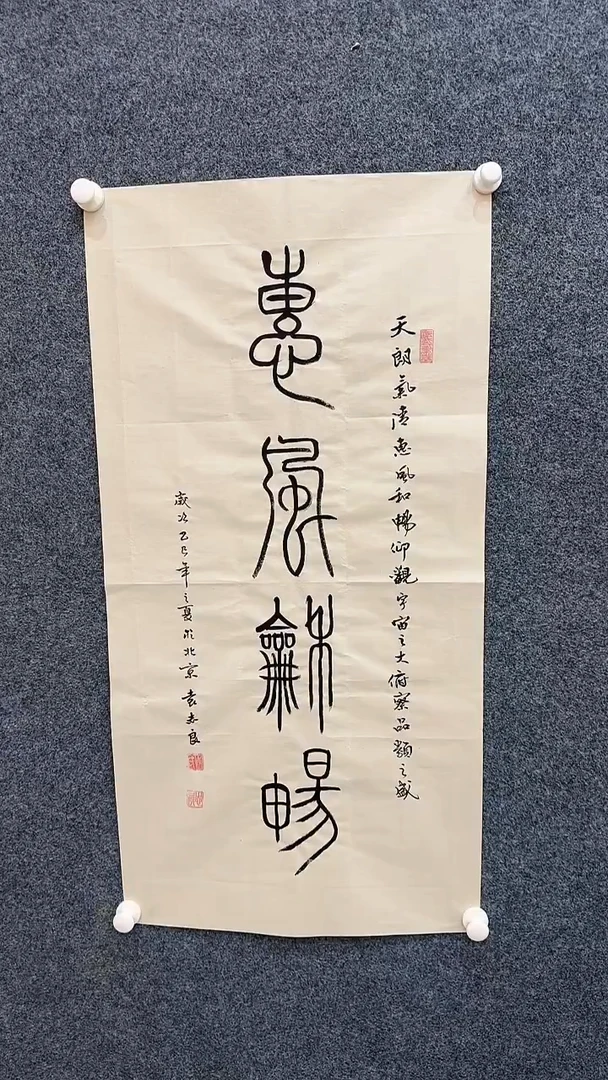 天朗氣清惠風和暢仰觀宇宙之大俯察品類之盛
惠風龢暢
歲次乙巳年之夏於北京 袁志良